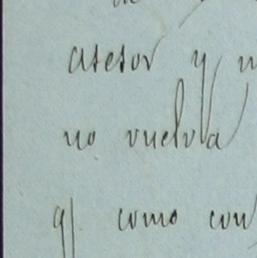 asesor y
no vuelva
q. como con